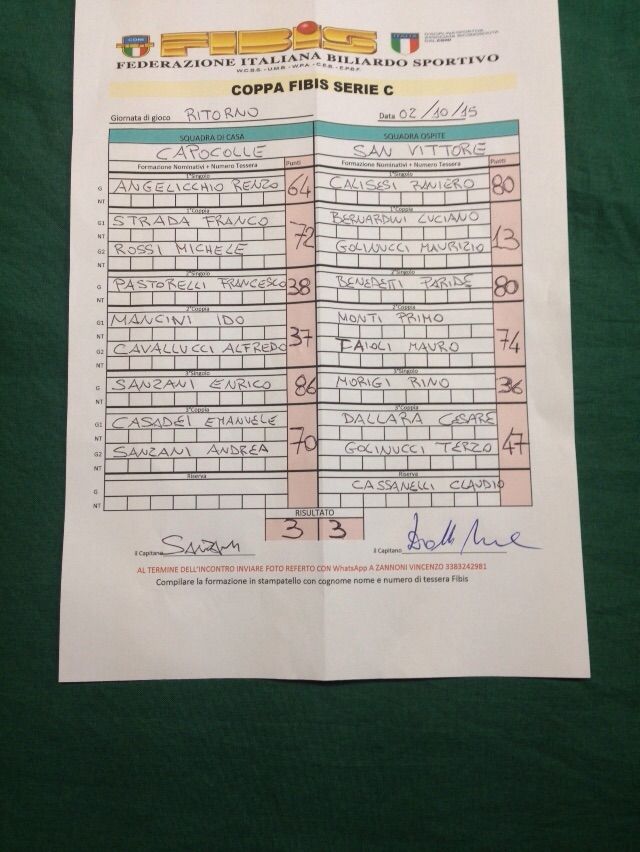 CONI
FIBIS
ITALIA
FEDERAZIONE ITALIANA BILIARDO SPORTIVO
W.C.B.S. - U.M.B. - W.P.A. - C.E.B. - E.P.B.F.
COPPA FIBIS SERIE C
Giornata di gioco RITORNO Data 02/10/15
SQUADRA DI CASA SQUADRA OSPITE
CAPOCOLLE SAN VITTORE
Formazione Nominativi + Numero Tessera Punti Formazione Nominativi + Numero Tessera Punti
1°Singolo 1°Singolo
G ANGELICCHIO RENZO 64 CALISESI RANIERO 80
NT
1°Coppia 1°Coppia
G1 STRADA FRANCO BERNARDINI LUCIANO
NT 72 13
G2 ROSSI MICHELE GOLINUCCI MAURIZIO
NT
2°Singolo 2°Singolo
G PASTORELLI FRANCESCO 38 BENEDETTI PARIDE 80
NT
2°Coppia 2°Coppia
G1 MANCINI IDO MONTI PRIMO
NT 37 74
G2 CAVALLUCCI ALFREDO TAIOLI MAURO
NT
3°Singolo 3°Singolo
G SANZANI ENRICO 86 MORIGI RINO 36
NT
3°Coppia 3°Coppia
G1 CASADEI EMANUELE DALLARA CESARE
NT 70 47
G2 SANZANI ANDREA GOLINUCCI TERZO
NT
Riserva Riserva
G CASSANELLI CLAUDIO
NT
RISULTATO
3 3
il Capitano Sanzani il Capitano
AL TERMINE DELL'INCONTRO INVIARE FOTO REFERTO CON WhatsApp A ZANNONI VINCENZO 3383242981
Compilare la formazione in stampatello con cognome nome e numero di tessera Fibis